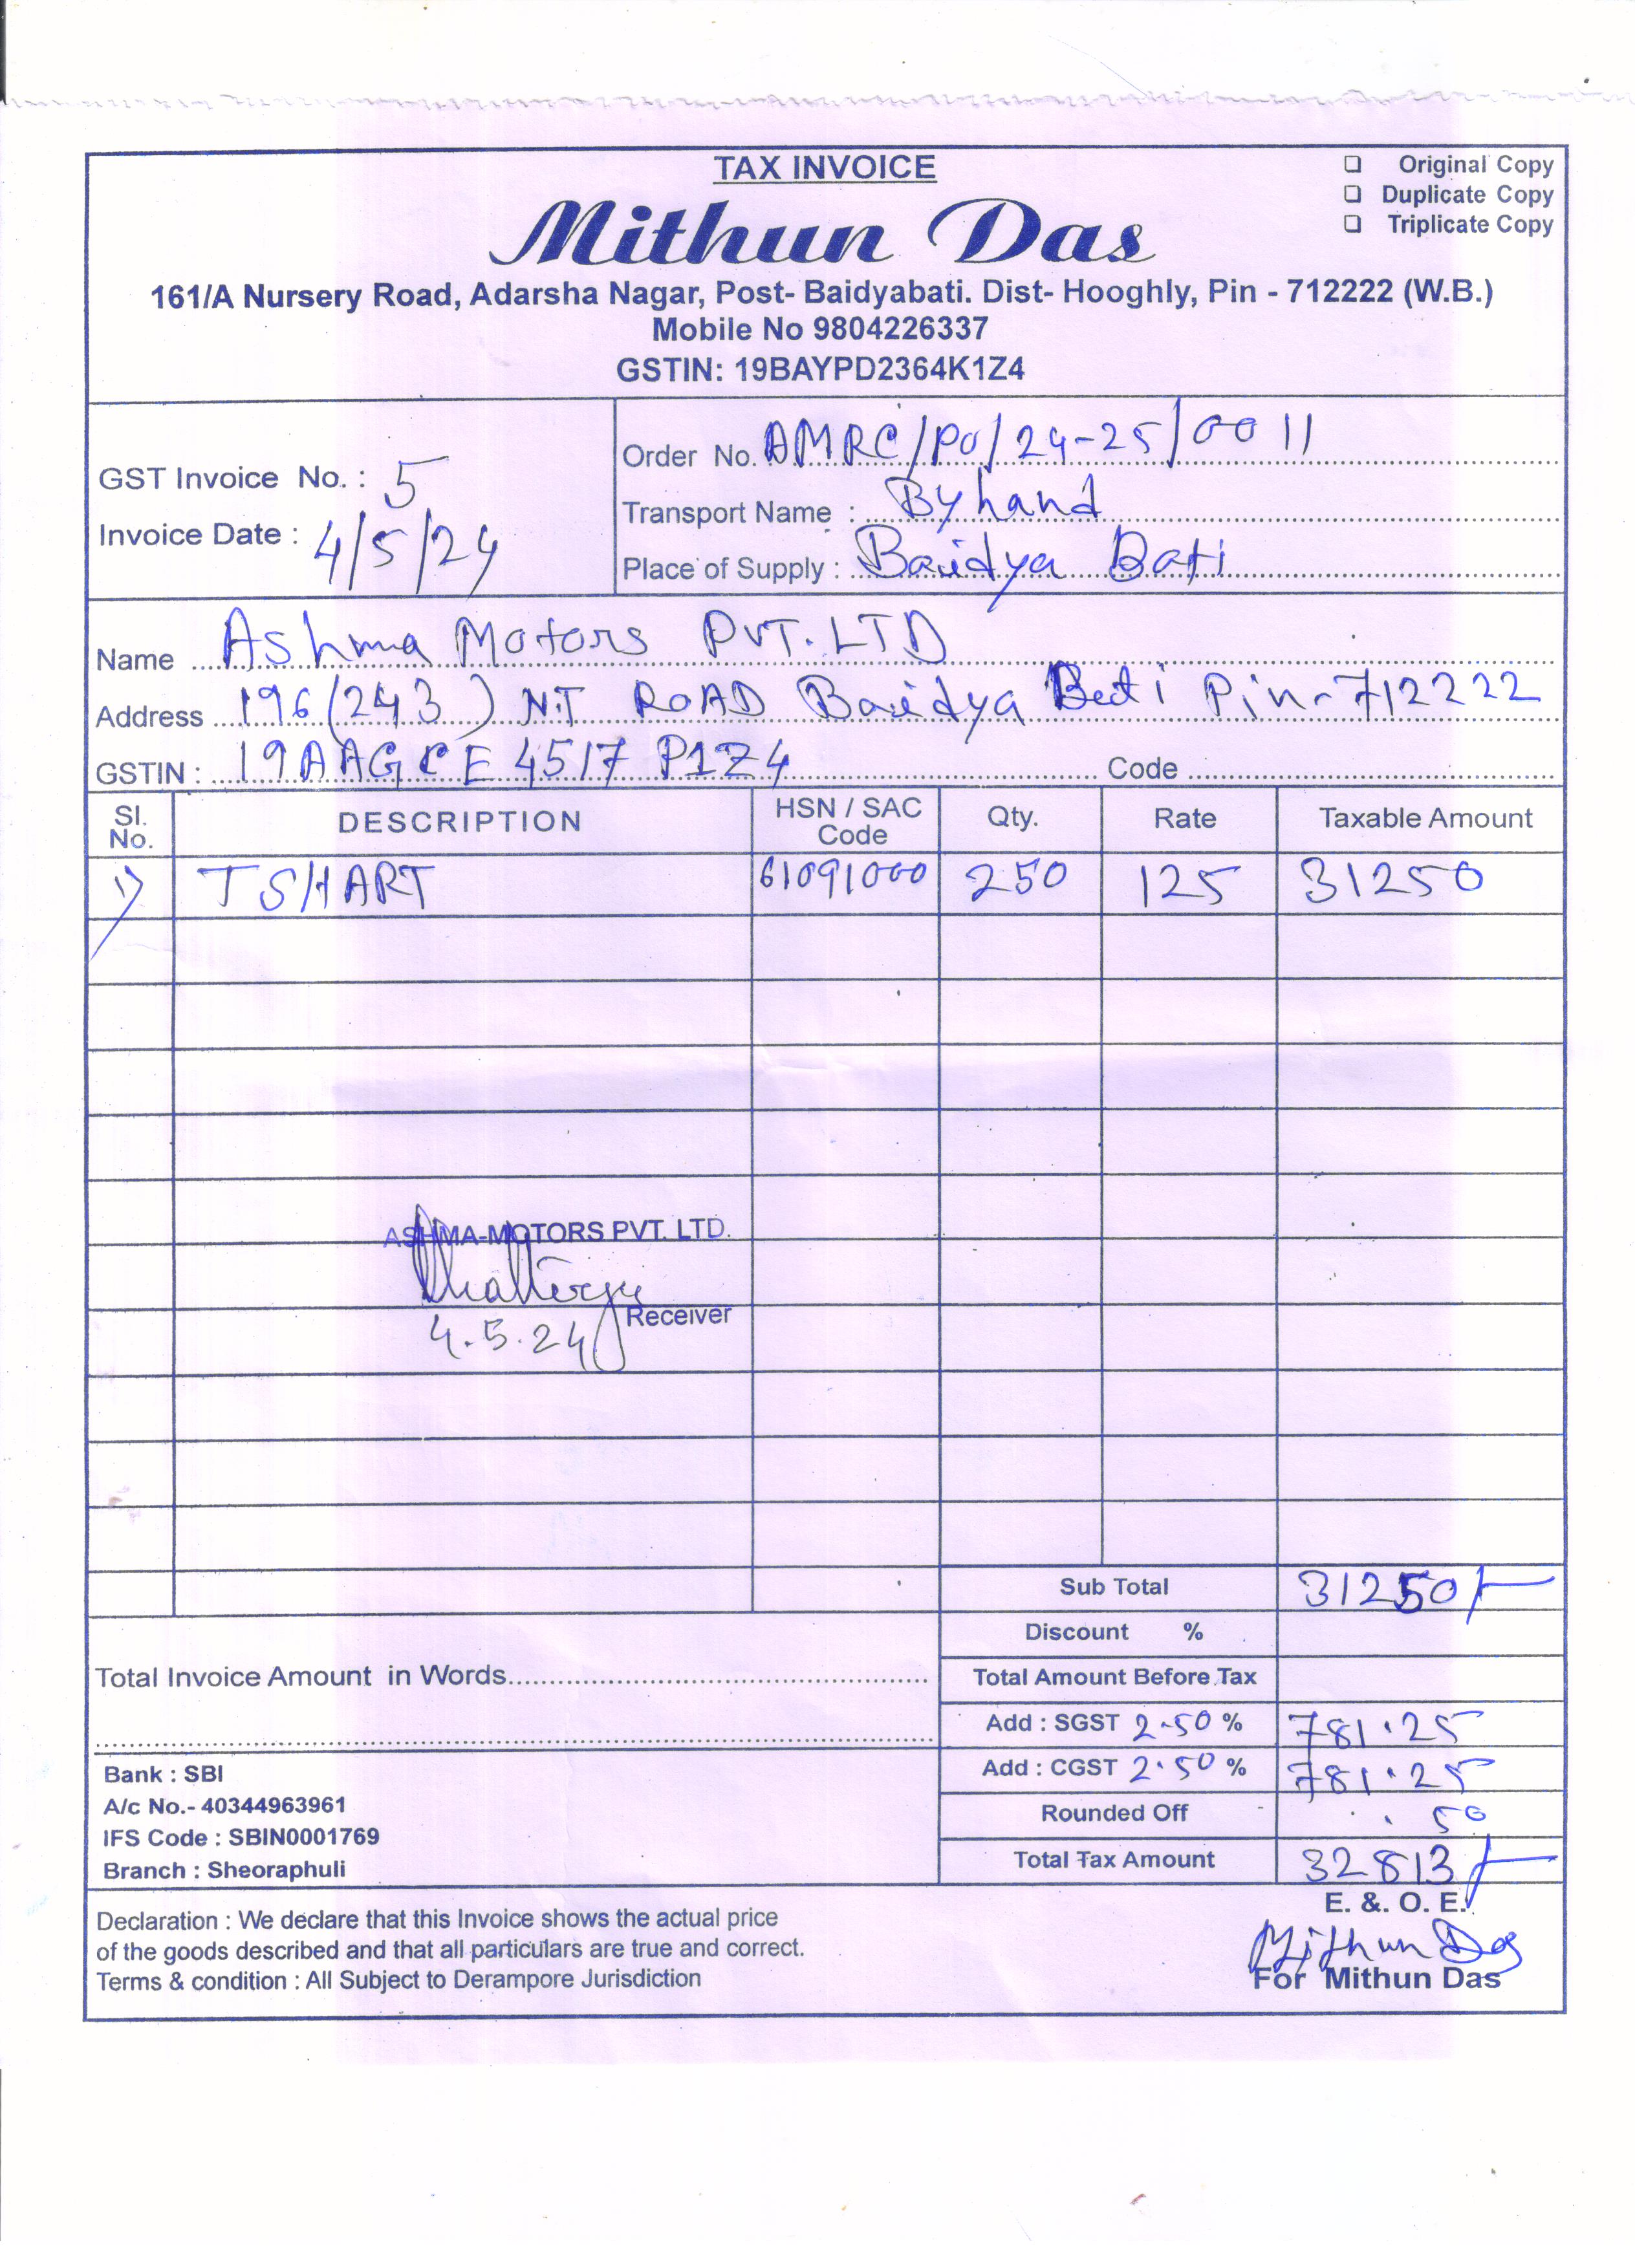 TAX INVOICE
Original Copy
Duplicate Copy
Triplicate Copy
Mithun Das
161/A Nursery Road, Adarsha Nagar, Post- Baidyabati. Dist- Hooghly, Pin - 712222 (W.B.)
Mobile No 9804226337
GSTIN: 19BAYPD2364K1Z4
GST Invoice No. : 5
Invoice Date : 4/5/24
Order No. AMRC/PO/24-25/0011
Transport Name : By hand
Place of Supply : Baidya Bati
Name Ashma Motors PVT. LTD
Address 196(243) N.T ROAD Baidya Bati Pin-712222
GSTIN : 19AAGCE4517P1Z4 Code
Sl. No. DESCRIPTION HSN / SAC Code Qty. Rate Taxable Amount
1) TSHART 61091000 250 125 31250
ASHMA-MOTORS PVT. LTD.
Chatterjee
Receiver
4.5.24
Sub Total 31250/-
Discount %
Total Invoice Amount in Words
Total Amount Before Tax
Add : SGST 2.50 % 781.25
Add : CGST 2.50 % 781.25
Rounded Off .50
Total Tax Amount 32813/-
Bank : SBI
A/c No.- 40344963961
IFS Code : SBIN0001769
Branch : Sheoraphuli
E. & O. E.
Declaration : We declare that this Invoice shows the actual price
of the goods described and that all particulars are true and correct.
Terms & condition : All Subject to Derampore Jurisdiction
Mithun Das
For Mithun Das